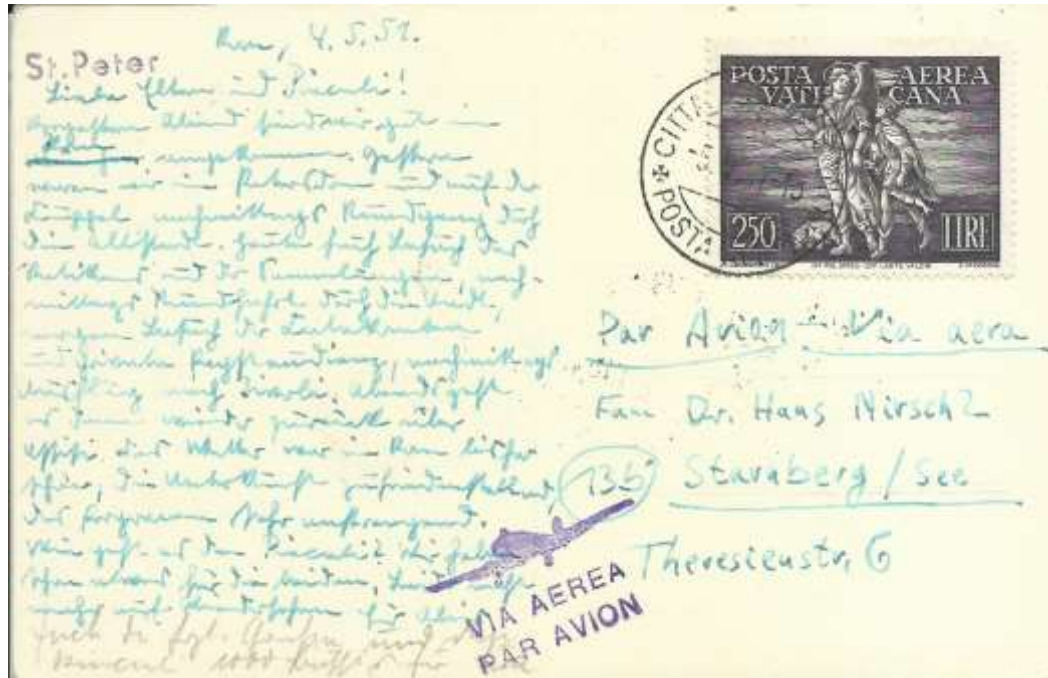 Rom, 4.5.51.
St. Peter
Liebe Eltern und Piccoli!
Vorgestern Abend sind wir gut in
angekommen. Gestern
waren wir im Petersdom und auf der
Kuppel nachmittags Rundgang durch
die Altstadt. Heute früh Besuch des
Vatikans und der Sammlungen, nach-
mittags Rundfahrt durch die Stadt,
morgen Besuch der Katakomben
und Papstaudienz, nachmittags
Ausflug nach Tivoli, abends geht
es dann wieder zurück über
Assisi. Das Wetter war in Rom bisher
schön, die Unterkunft zufriedenstellend
das Programm sehr anstrengend.
Wie geht es den Piccoli? Wir haben
schon etwas für die beiden,
POSTA AEREA
VATICANA
250 LIRE
CITTA
POSTA
Par Avion Via aera
Fam Dr. Hans Nirschl
13b Starnberg / See
Theresienstr. 6
VIA AEREA
PAR AVION